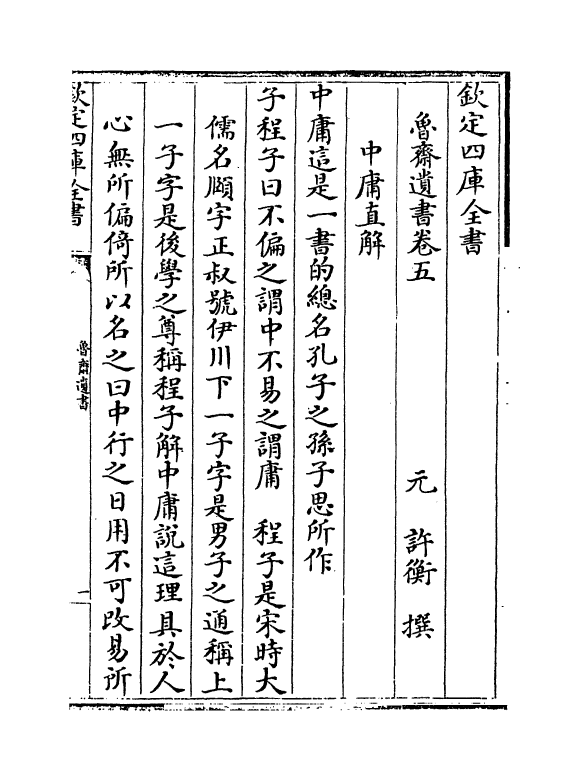 欽定四庫全書
魯齋遺書卷五
元 許衡 撰
中庸直解
中庸這是一書的總名孔子之孫子思所作
子程子曰不偏之謂中不易之謂庸 程子是宋時大
儒名頤字正叔號伊川下一子字是男子之通稱上
一子字是後學之尊稱程子解中庸說這理具於人
心無所偏倚所以名之曰中行之日用不可改易所
欽定四庫全書
魯齋遺書
一